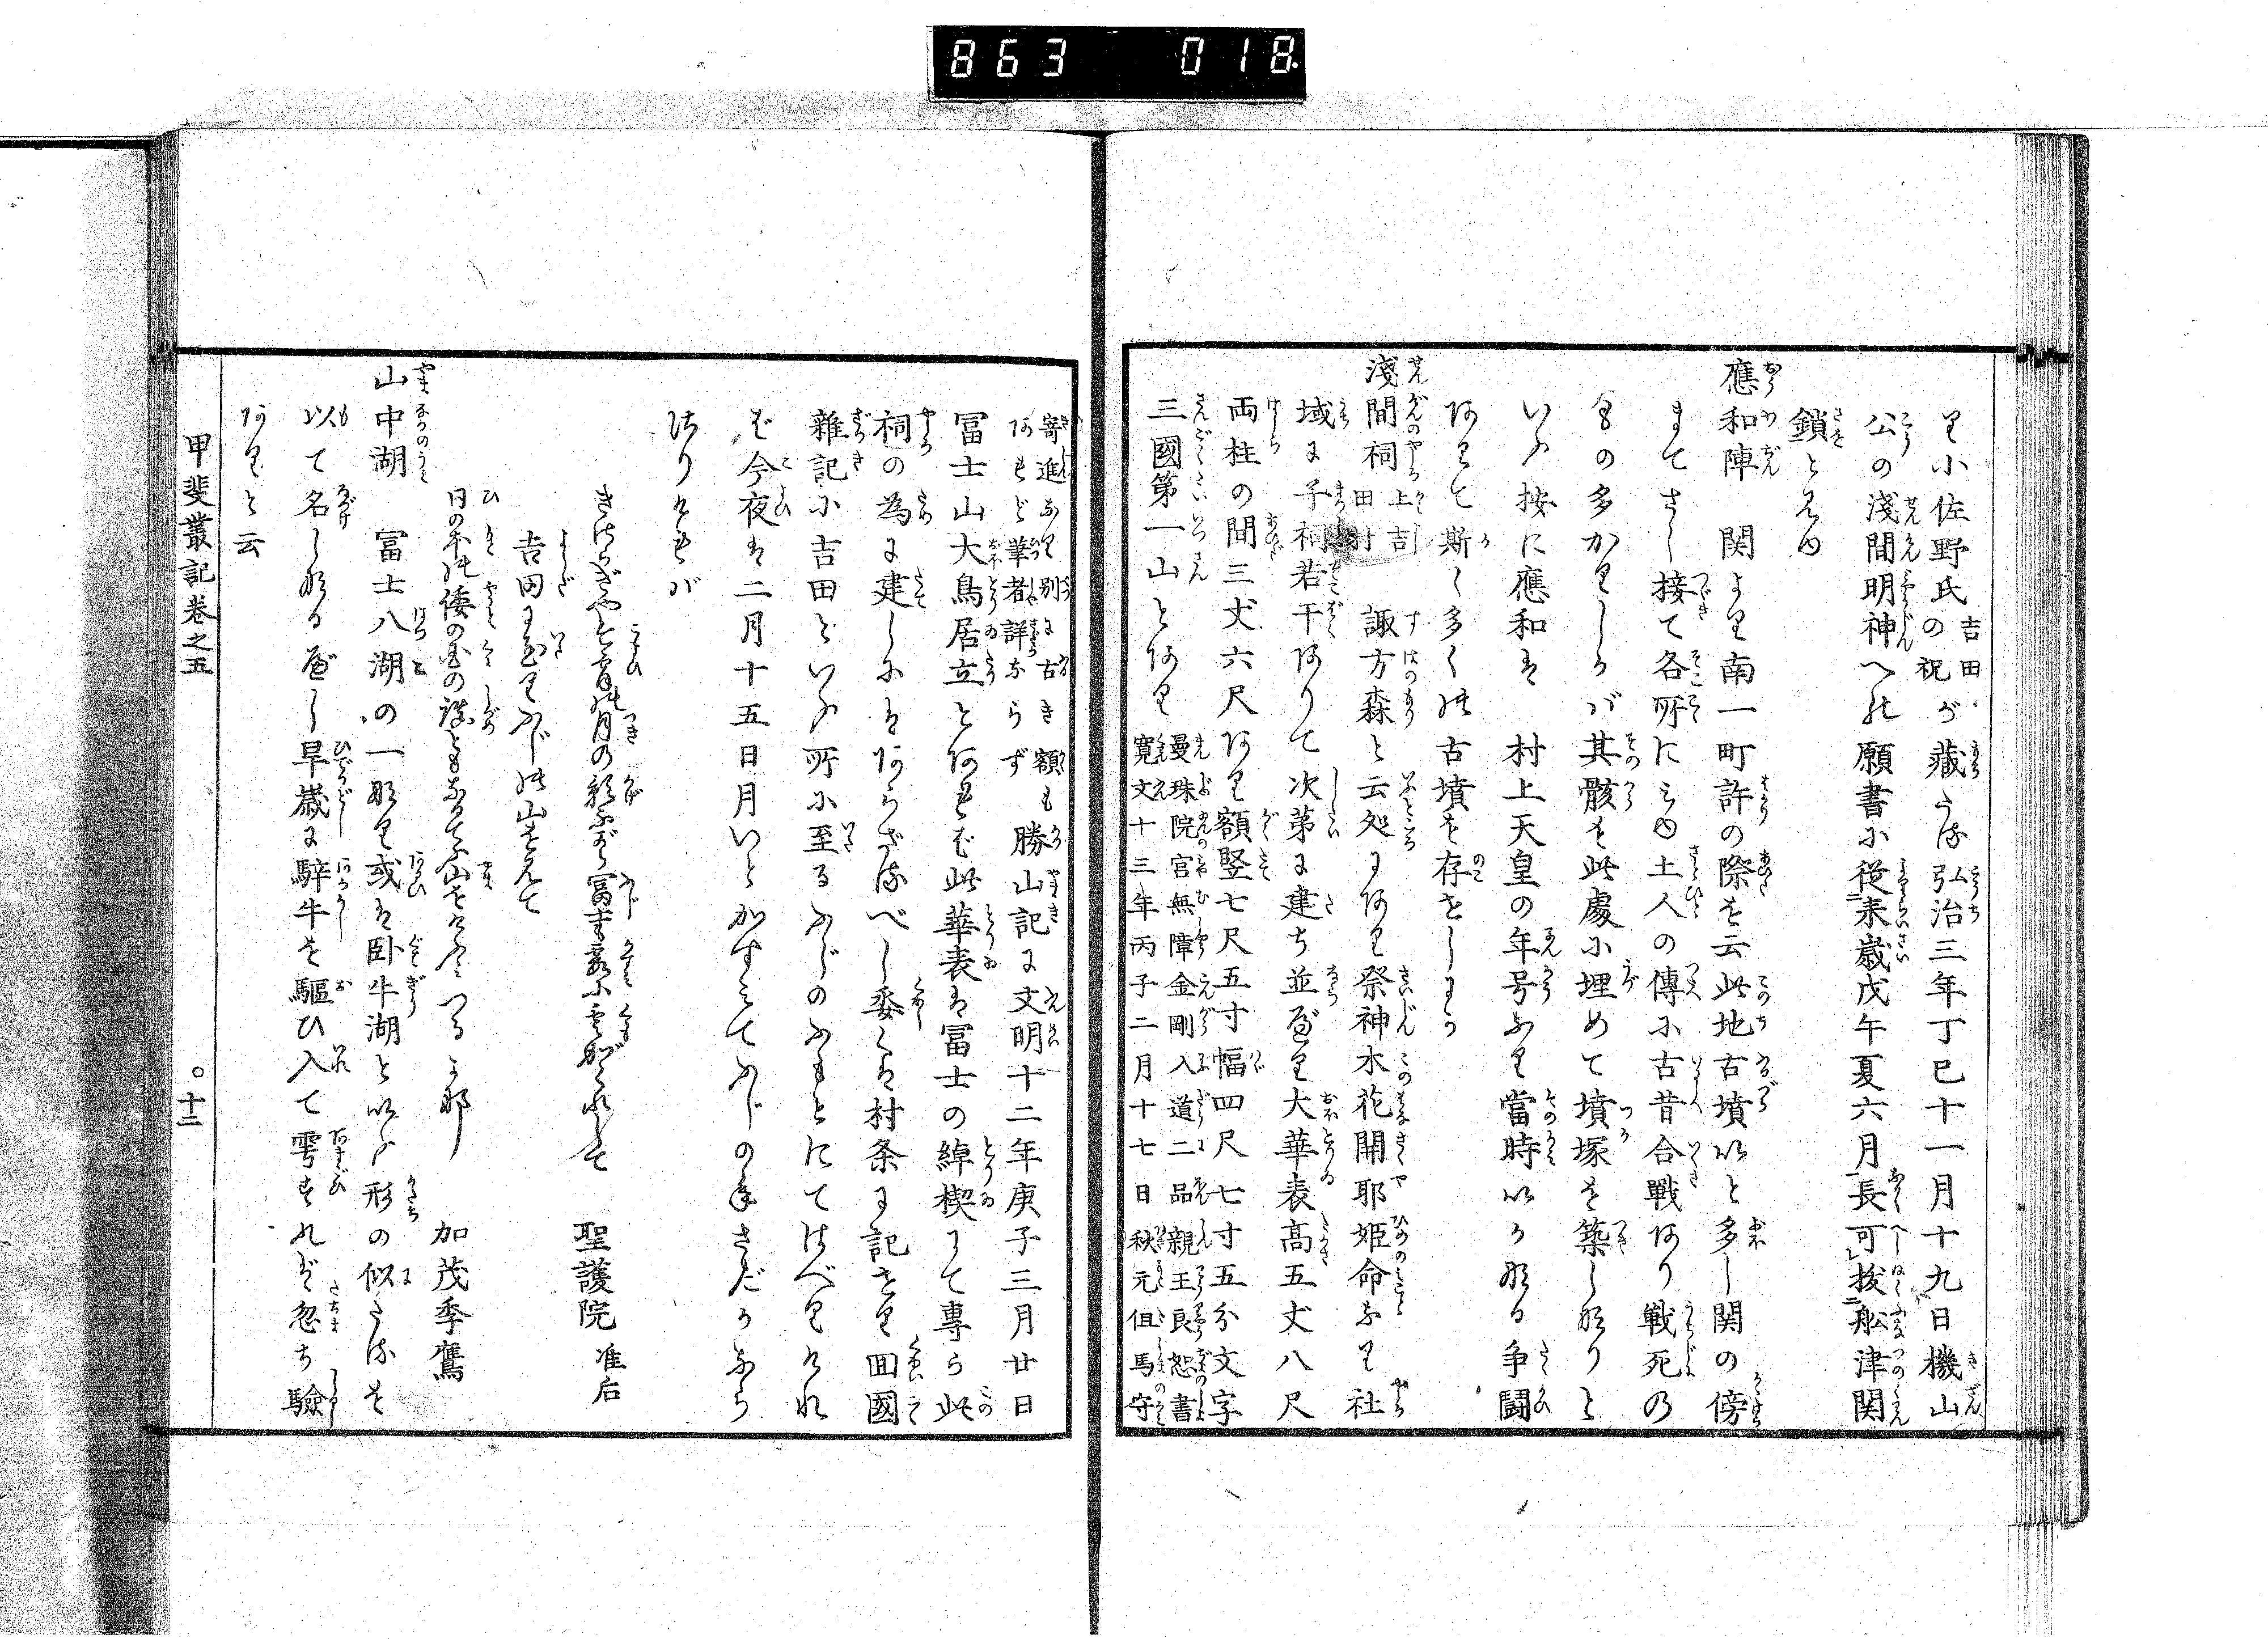 863 018
り小佐野氏吉田の祝が藏たる弘治三年丁巳十一月十九日機山
公の淺間明神への願書に従来歳戊午夏六月長可抜舩津関
鎖と見ゆ
應和陣 関より南一町許の際を云此地古墳いと多し関の傍
まてさし接て各所にみゆ土人の傳に古昔合戰あり戰死の
もの多かりしかバ其骸を此處に埋めて墳塚を築しなりと
いふ按に應和は 村上天皇の年号なり當時いかなる争闘
ありて斯く多くの古墳を存せしにか
淺間祠上吉田村 諏方森と云処にあり祭神木花開耶姫命なり社
域に子祠若干ありて次第に建ち並べり大華表髙五丈八尺
両柱の間三丈六尺あり額竪七尺五寸幅四尺七寸五分文字
三國第一山とあり曼珠院宮無障金剛入道二品親王良恕書
寛文十三年丙子二月十七日秋元但馬守
寄進なり別に古き額も
あれど華者詳ならず 勝山記に文明十二年庚子三月廿日
冨士山大鳥居立とあれば此華表は冨士の綽楔にて專ら此
祠の為に建しにはあらざるべし委くは村条に記せり囬國
雜記に吉田といふ所に至るふじのふもとにてはべりけれ
ば今夜は二月十五日月いとかすみてふじの
ければ
聖護院准后
吉田に至りふじの山を見て
日の本の倭の国の鎮ともなるてふ山を つるかも 加茂季鷹
山中湖 冨士八湖の一なり或は卧牛湖といふ形の似たるを
以て名しなるべし早歳に騂牛を驅ひ入て雩すれば忽ち驗
ありと云
甲斐叢記巻之五 〇十二